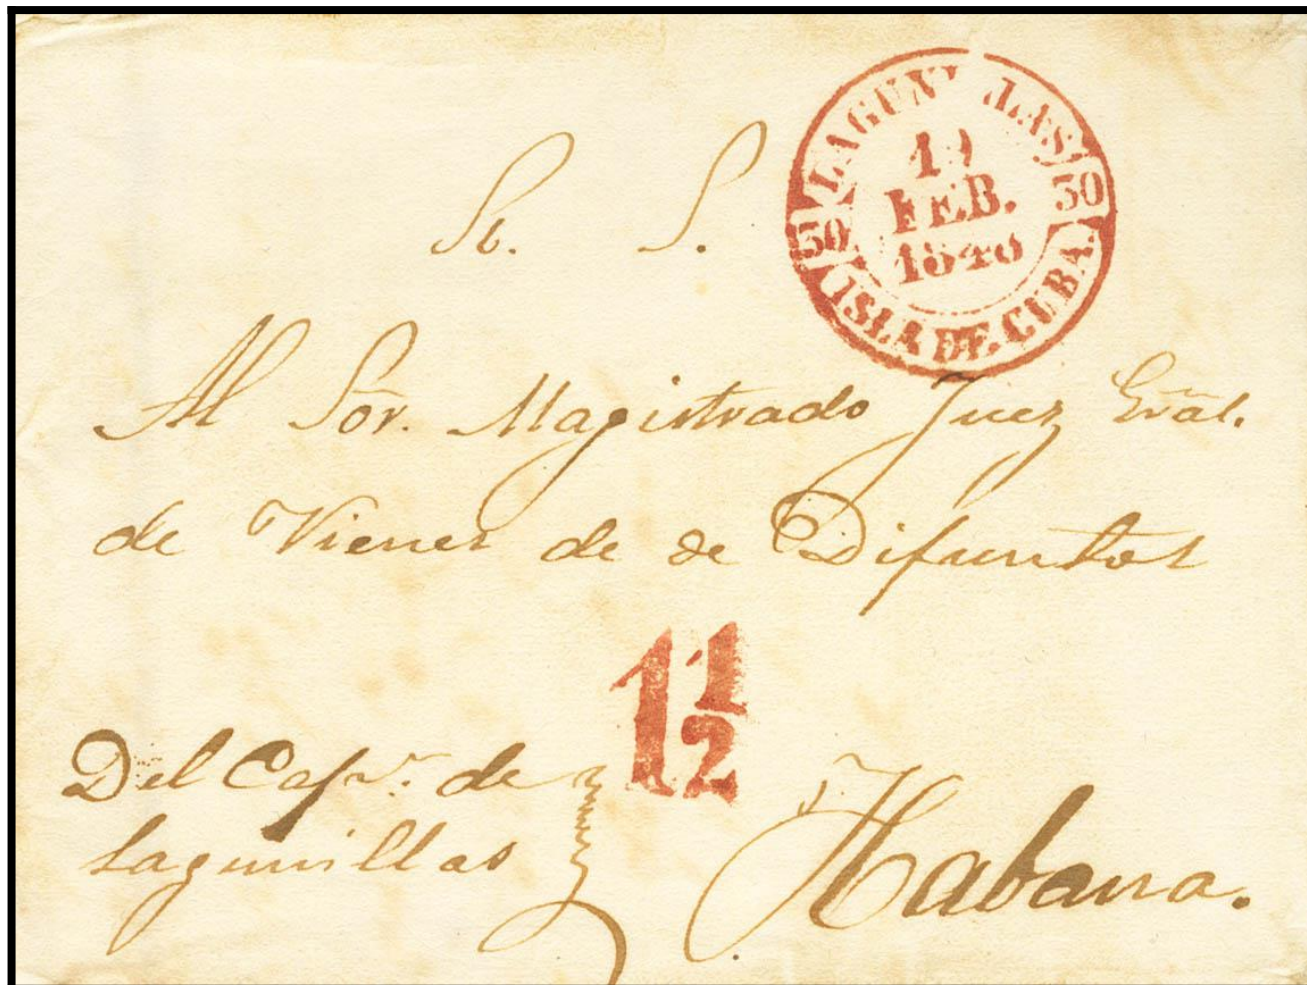 LAGUNILLAS
FEB.
30 30
ISLA DE CUBA.
S. S.
Al Sor. Magistrado Juez Gral.
de Vienes de de Difuntos
1 1/2
Del Capn. de
Lagunillas
Habana.